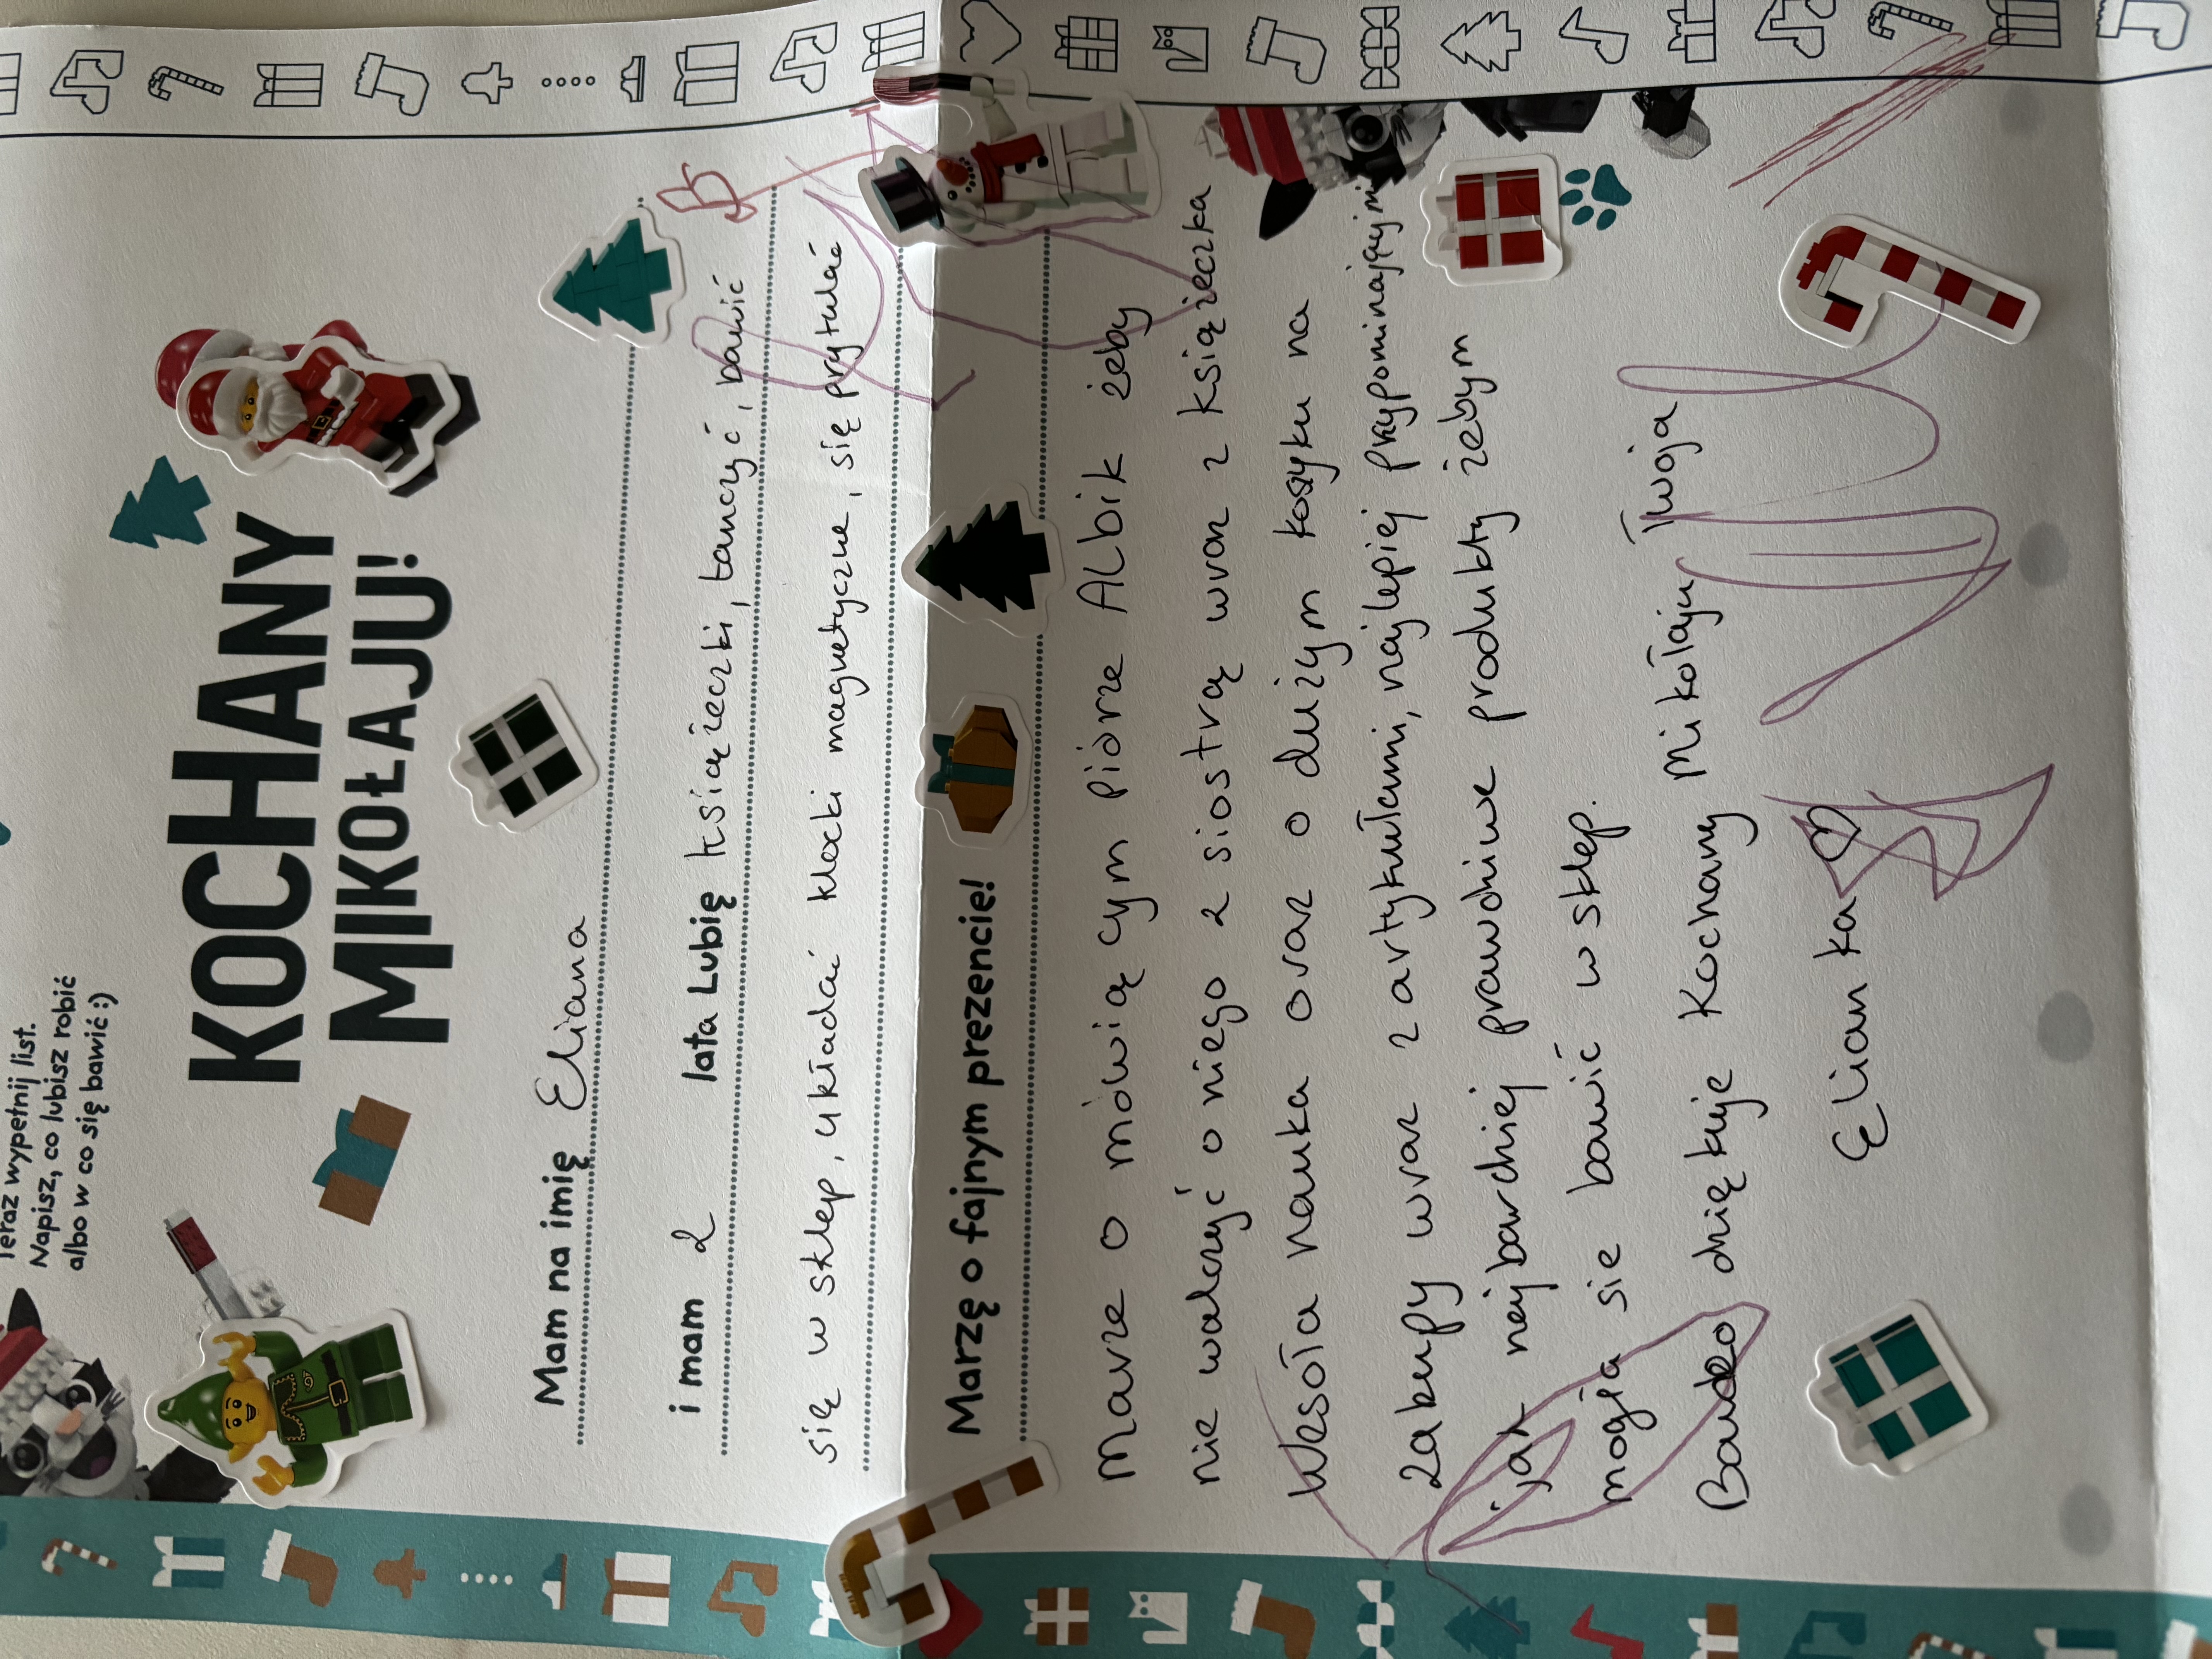 Teraz wypełnij list.
Napisz, co lubisz robić
albo w co się bawić :)
KOCHANY
MIKOŁAJU!
Mam na imię Eliana
i mam 2 lata Lubię książeczki, tańczyć, bawić
się w sklep, układać klocki magnetyczne, się prytulać
Marzę o fajnym prezencie!
Marze o mówią cym piórze Albik żeby
nie walczyć o niego z siostrą wraz z książeczka
Wesoła nauka oraz o dużym koszyku na
zakupy wraz z artykułami, najlepiej przypominającymi
jak najbardziej prawdziwe produkty żebym
mogła sie bawić w sklep.
Bardzo dziękuje Kochany Mikołaju Twoja
Elianka ♡